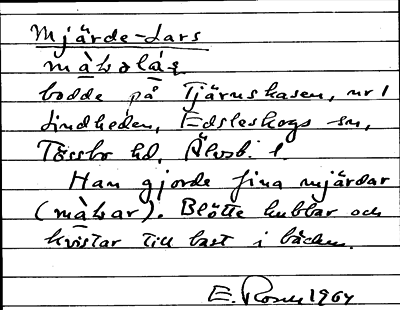 Mjärde-Lars
bodde på Tjärnshasen, nr 1
Lindheden, Edsleskogs sn,
Tössbo hd, Älvsb. l.
Han gjorde fina mjärdar
(màƚar). Blötte kubbar och
kvistar till bast i bäcken.
E. Rosen 1964